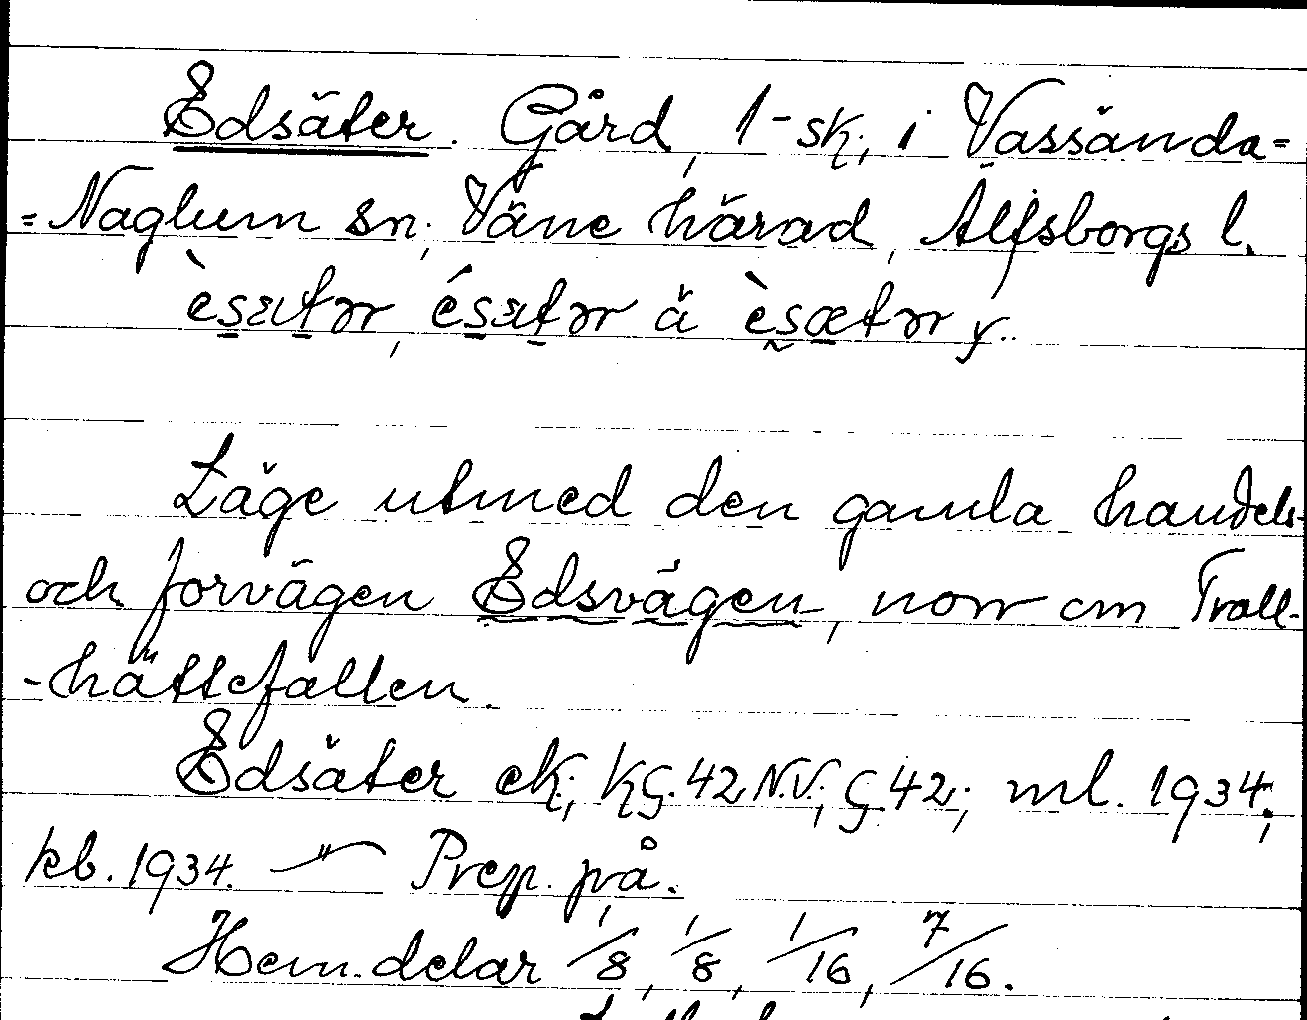 Edsäter. Gård, 1-sk, i Vassända=
=Naglum sn, Väne härad, Älfsborgs l.
èsætər, ésætər å èsætər y.
Läge utmed den gamla handels-
och forvägen Edsvägen, norr om Troll-
-hättefallen.
Edsäter ek; kG.42 N.V.; G 42; ml. 1934;
kb. 1934. — " — Prep. på.
Hem.delar 1/8, 1/8, 1/16, 7/16.